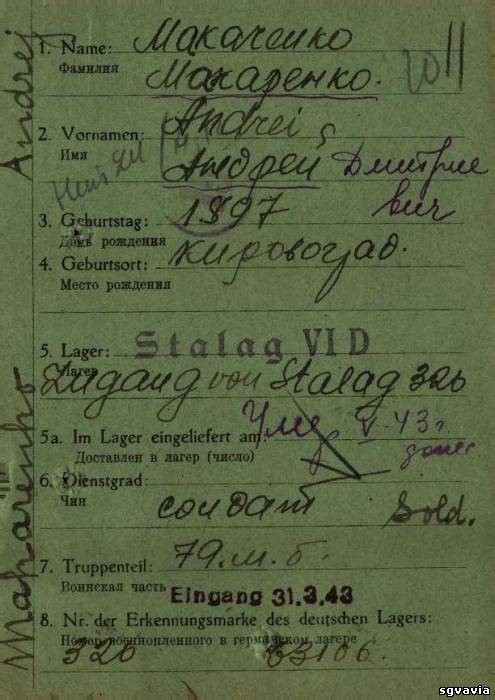 1. Name: Макаченко
Фамилия Макаренко.
2. Vornamen: Andrei
Имя Андрей Дмитрие
вич
3. Geburtstag: 1897
День рождения
4. Geburtsort: Кировоград.
Место рождения
5. Lager: Stalag VI D
Лагерь
Zugang von Stalag 326
Умер V-43г.
5a. Im Lager eingeliefert am:
Доставлен в лагер (число)
6. Dienstgrad:
Чин солдат Sold.
7. Truppenteil: 79.ш.б.
Воинская часть
Eingang 31.3.43
8. Nr. der Erkennungsmarke des deutschen Lagers:
Номер военнопленного в германском лагере
326
Makarenko Andrej
sgvavia